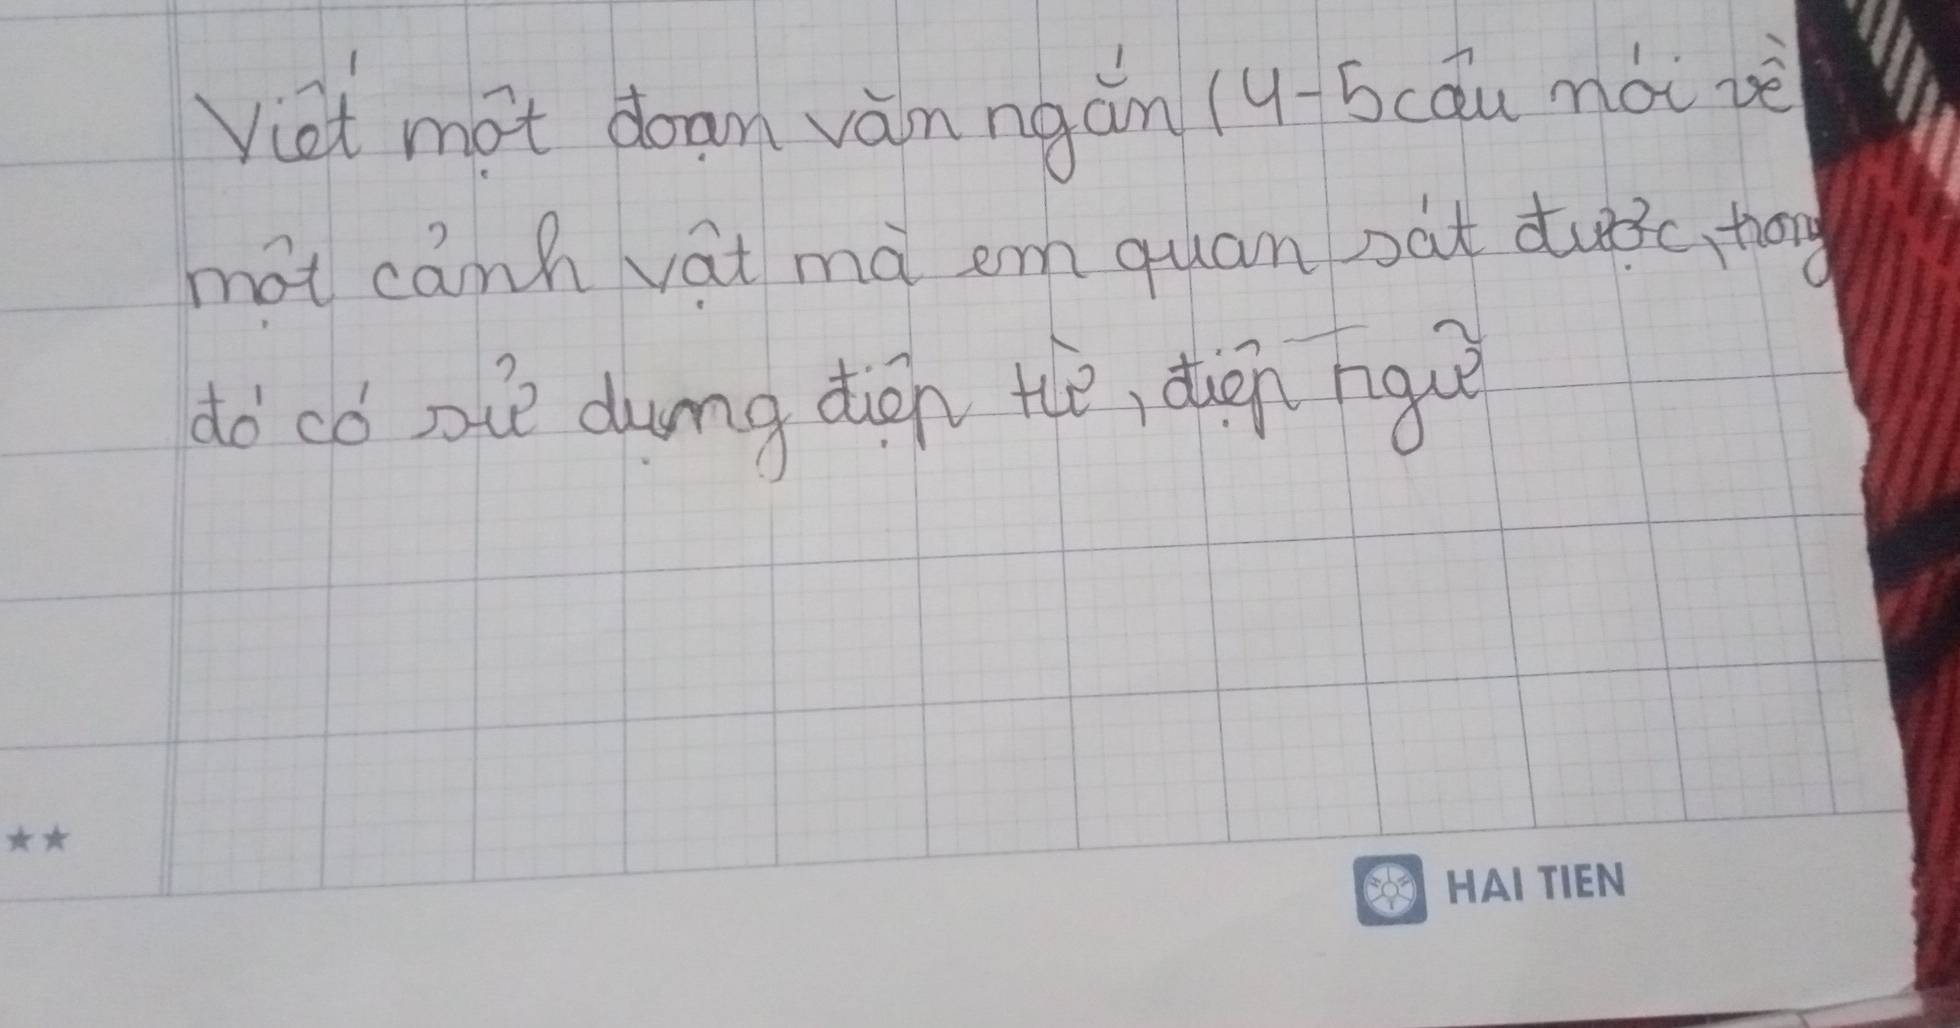 Viết một đoạn văn ngắn (4-5 câu nói về
một cảnh vật mà em quan sát được, trong
đó có sử dụng điệp từ, điệp ngữ
★★
HAI TIEN